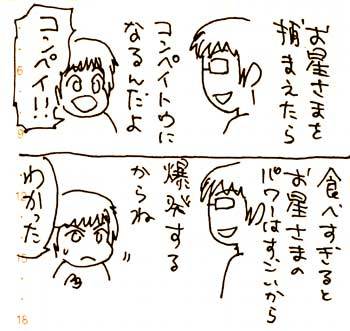 お星さまを
捕まえたら
コンペイトウに
なるんだよ
コンペイ!!
食べすぎると
お星さまの
パワーはすごいから
爆発する
からね
わかった
16